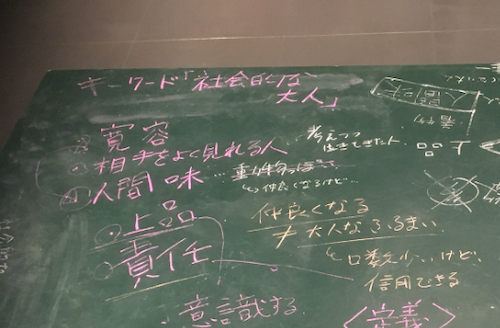 キーワード「社会的な
大人」
寛容
相手をよく見れる人
考えつつ
生きてきた人
人間味
仲良くなるけど…
上品
仲良くなる
≠大人なふるまい
責任
口数少いけど、
信用できる
意識する
<定義>